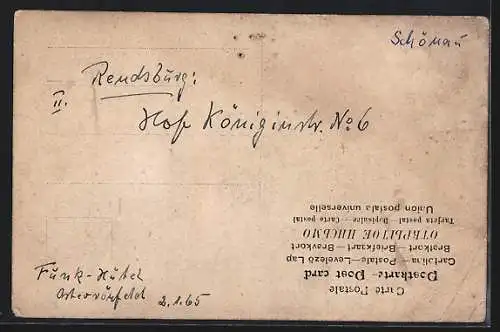 Schönau
Rendsburg:
II.
Hof Königinstr. No 6
Carte Postale
Postkarte – Post card
Cartolina – Postale – Levelező Lap
Brefkort – Briefkaart – Brevkort
ОТКРЫТОЕ ПИСЬМО
Tarjeta postal – Dopisnice – Carte postal
Union postala universelle
Funk-Hütel
2.1.65